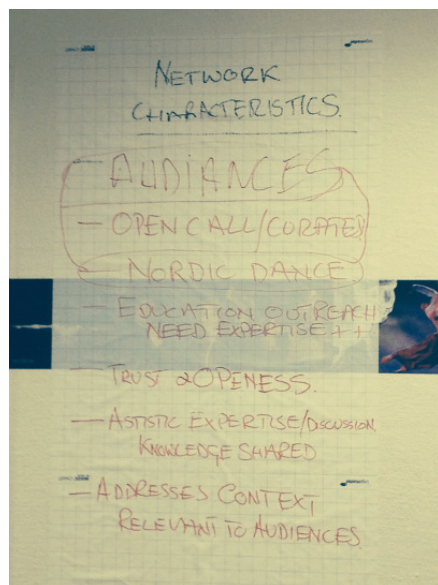 NETWORK
CHARACTERISTICS.
- AUDIANCES
- OPEN CALL/CURATED
- NORDIC DANCE
- EDUCATION OUTREACH
NEED EXPERTISE ++
- TRUST & OPENESS.
- ASTISTIC EXPERTISE/DISCUSSION
KNOWLEDGE SHARED
- ADDRESSES CONTEXT
RELEVANT TO AUDIENCES.